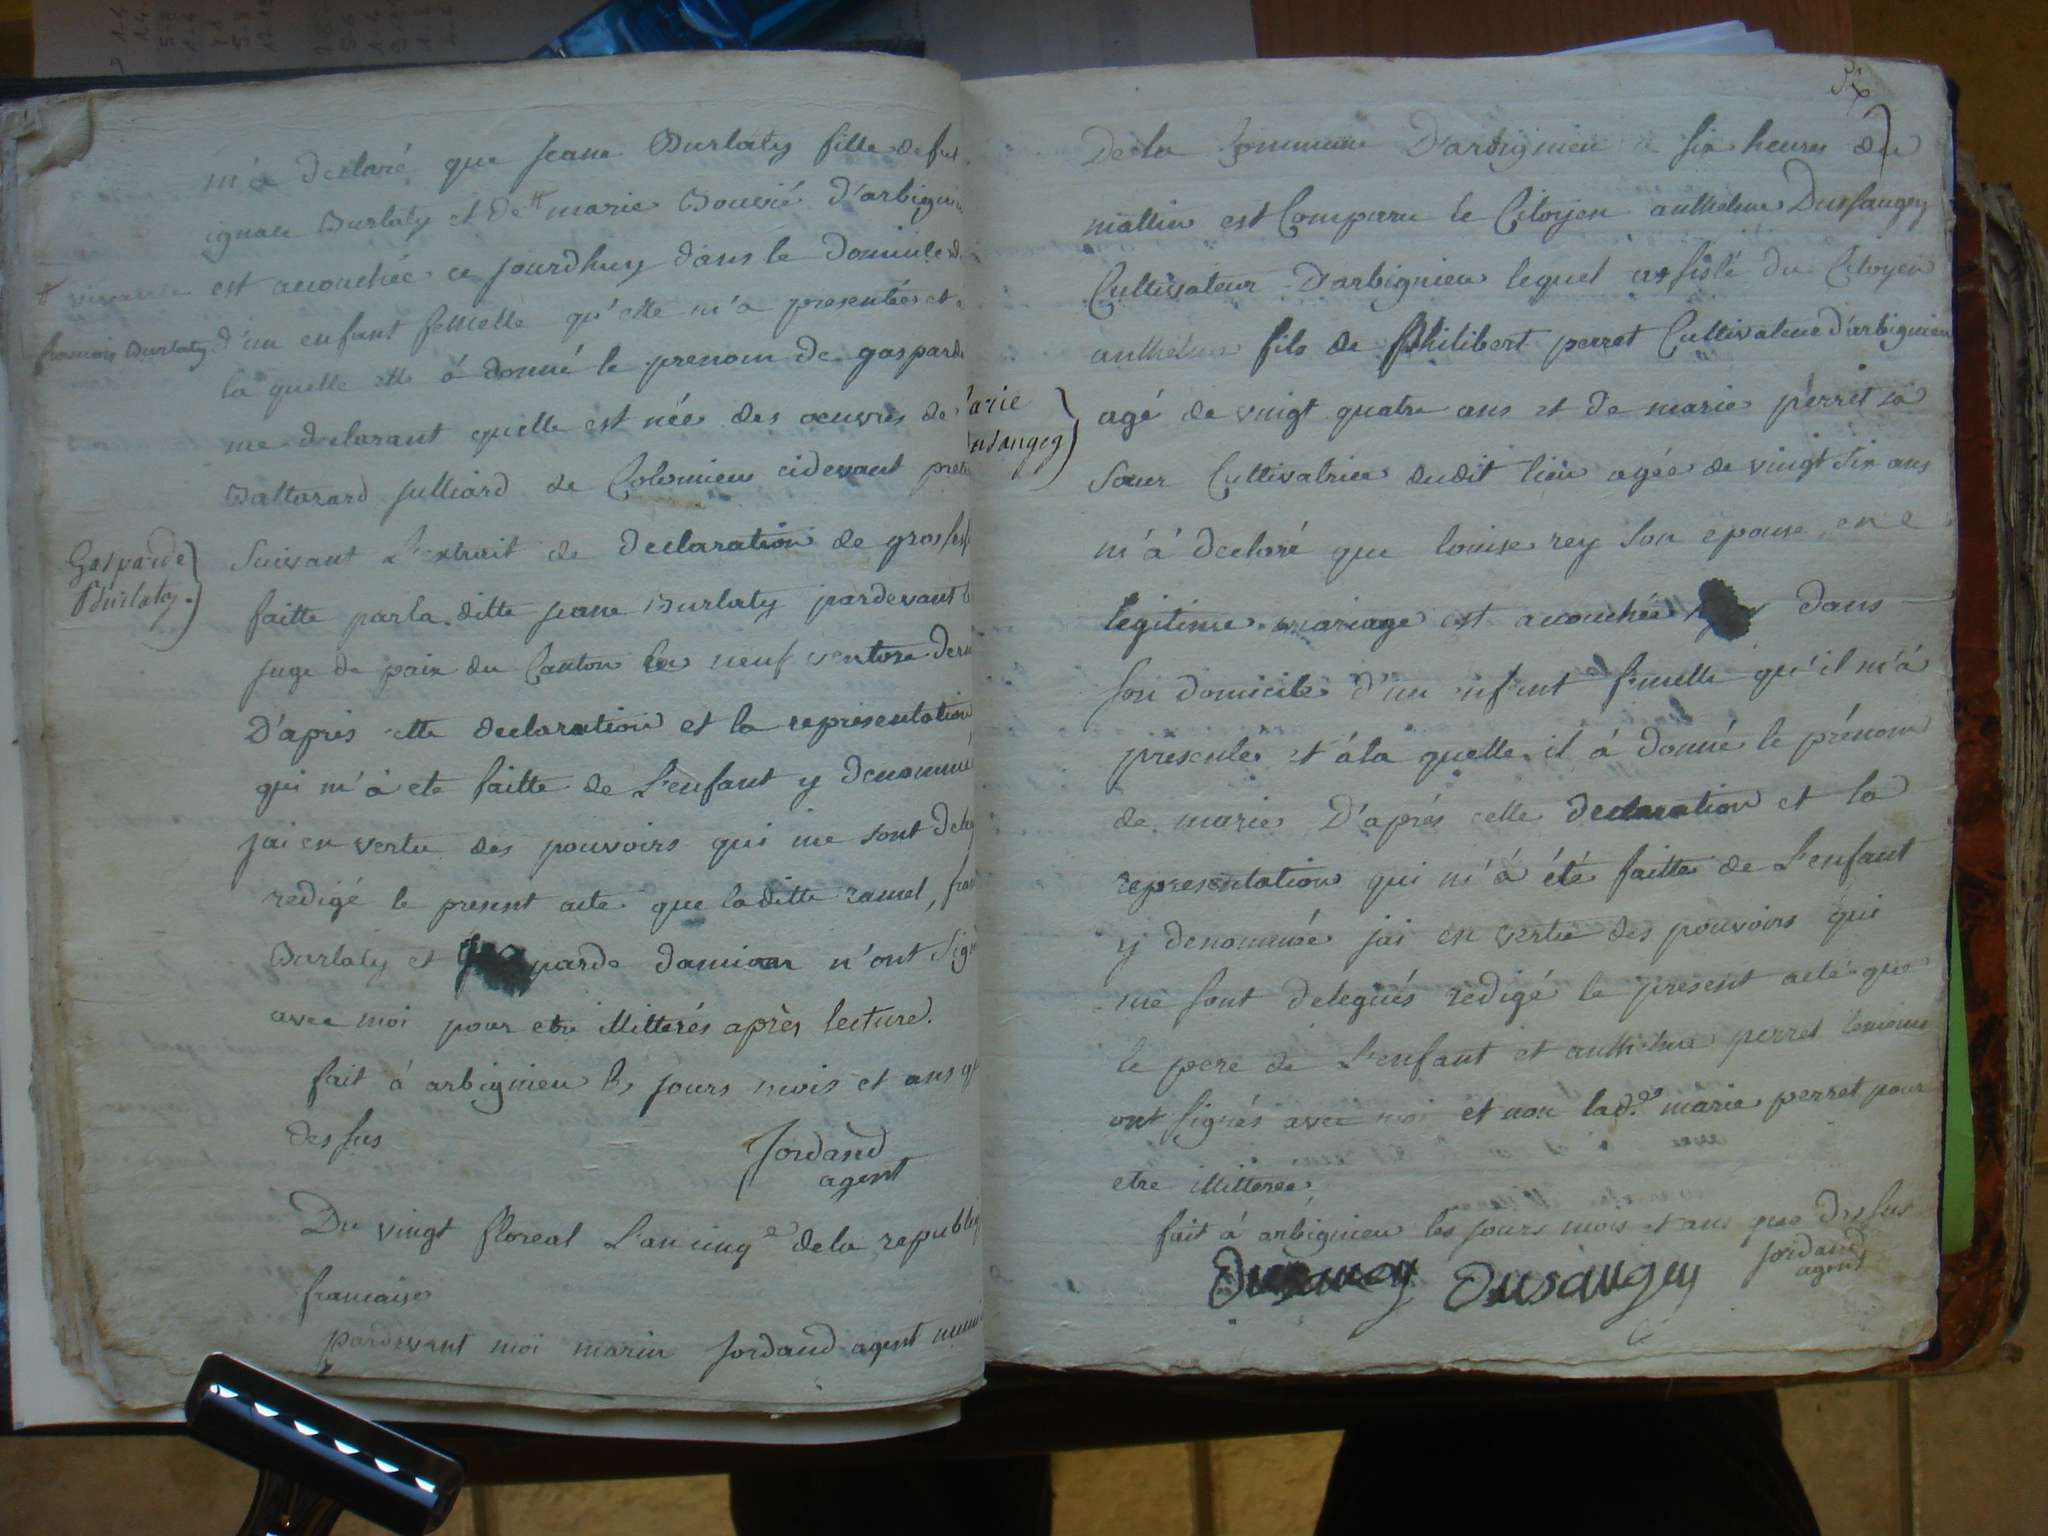 m'a declaré que jeane Burlaty fille de feu
ignace Burlaty et de # marie Bouvié d'arbignieu
est acouchée ce jourdhuy dans le domicile d
# vivante
françois Burlaty
d'un enfant femelle qu'elle m'a presentée et a
la quelle elle á donné le prenom de gasparde
me declarant quelle est née des œuvres de
Baltazard julliard de Colomieu cidevant pret
Gasparde
Burlaty.
Suivant L'extrait de declaration de grossesse
faitte parla ditte jeane Burlaty pardevant l
juge de paix du Canton le neuf ventose derni
D'apres cette declaration et la representation
qui m'á ete faitte de L'enfant y denommé
jai en vertu des pouvoirs qui me sont deleg
redigé le present acte que laditte ramel, fran
Burlaty et gasparde damian n'ont signé
avec moi pour etre illitterés après lecture.
fait á arbignieu les jours mois et ans q
des sus
jordand
agent
Du vingt floreal L'an cinq e de la republiq
francaise
pardevant moi marin jordand agent muni
Six
De la Commune D'arbignieu a six heures du
mattin est Comparu le Citoyen anthelme Dussaugey
Cultivateur D'arbignieu lequel assisté du Citoyen
anthelme fils de philibert perret Cultivateur d'arbignieu
arie
usaugey
agé de vingt quatre ans et de marie perret sa
sœur Cultivatrice dudit lieu agée de vingt six ans
m'á declaré que louise rey son epouse en
legitime mariage est acouchée dans
son domicile d'un enfant femelle qu'il m'á
presente et á la quelle il á donné le prénom
de marie D'aprés cette declaration et la
representation qui m'á été faitte de L'enfant
y denommée jai en vertu des pouvoirs qui
me sont delegués redigé le present acte que
le pere de L'enfant et anthelme perret temoins
ont signés avec moi et non lad.e marie perret pour
etre illiterée
fait á arbignieu les jours mois et ans que des sus
jordand
agent
Dusaugey